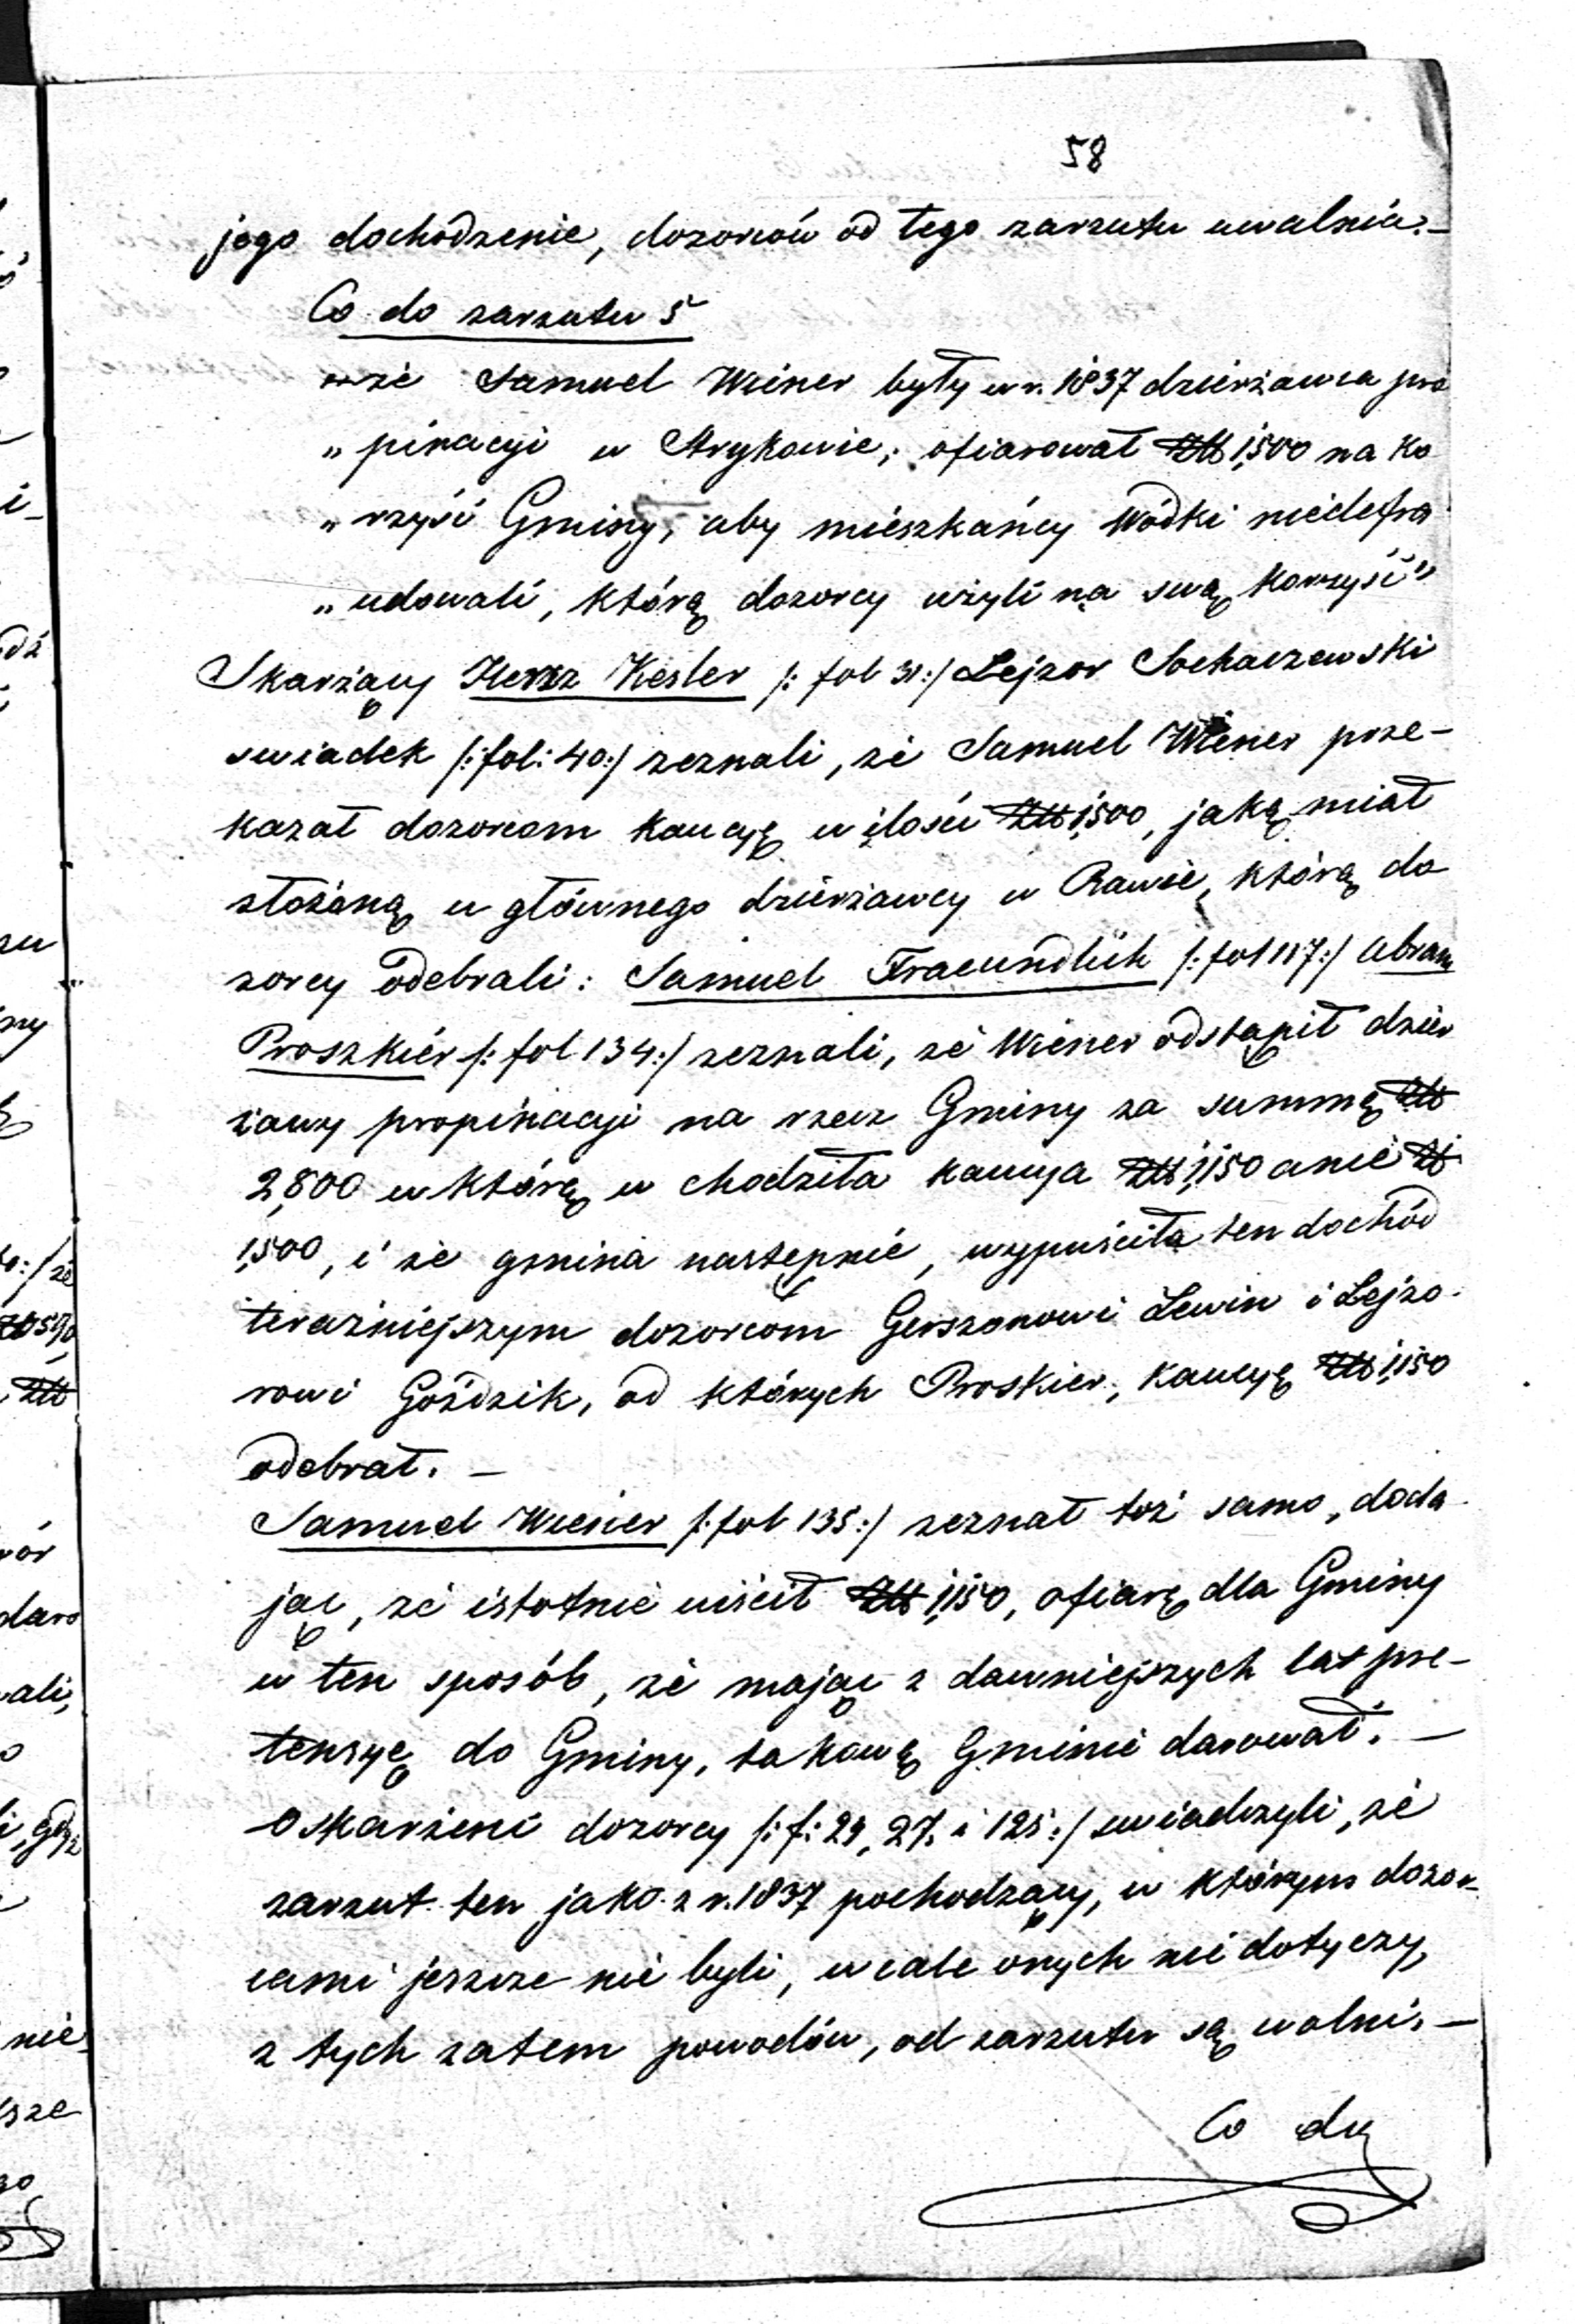 58
jego dochodzenie, dozorców od tego zarzutu uwalnia.—
Co do zarzutu 5
„że Samuel Wiener były w r. 1837 dzierżawca pro
„pinacyi w Strykowie, ofiarował Złt 1,500 na ko
„rzyść Gminy, aby mieszkańcy Wódki niedefra
„udowali, którą dozorcy użyli na swą korzyść"
Skarżący Hersz Kesler /: fol 31:/ Lejzor Sochaczewski
swiadek /: fol: 40:/ zeznali, że Samuel Wiener prze-
kazał dozorcom kaucyę w ilości Złt 1,500, jaką miał
złożoną u głównego dzierżawcy w Rawie, którą do
zorcy odebrali: Samuel Fraeundlich /: fol 117:/ Abram
Proszkier /: fol 134:/ zeznali, że Wiener odstąpił dzier
żawy propinacyi na rzecz Gminy za summę Złt
2,800 w którą w chodziła kaucya Złt 1,150 a nie Zł
1,500, i że gmina następnie, wypuściła ten dochód
teraźniejszym dozorcom Gerszonowi Lewin i Lejzo-
rowi Goździk, od których Proskier, kaucyę Złt 1,150
odebrał. —
Samuel Wiener /: fol 135:/ zeznał toż samo, doda
jąc, że istotnie uiścił Złt 1,150, ofiarę dla Gminy
w ten sposób, że mając z dawniejszych lat pre-
tensyę do Gminy, takową Gminie darował. —
Oskarżeni dozorcy /: f: 29, 27, i 125:/ swiadczyli, że
zarzut ten jako z r. 1837 pochodzący, w którym dozor-
cami jeszcze nie byli, wcale onych nie dotyczy,
z tych zatem powodów, od zarzutu są wolni. —
Co do